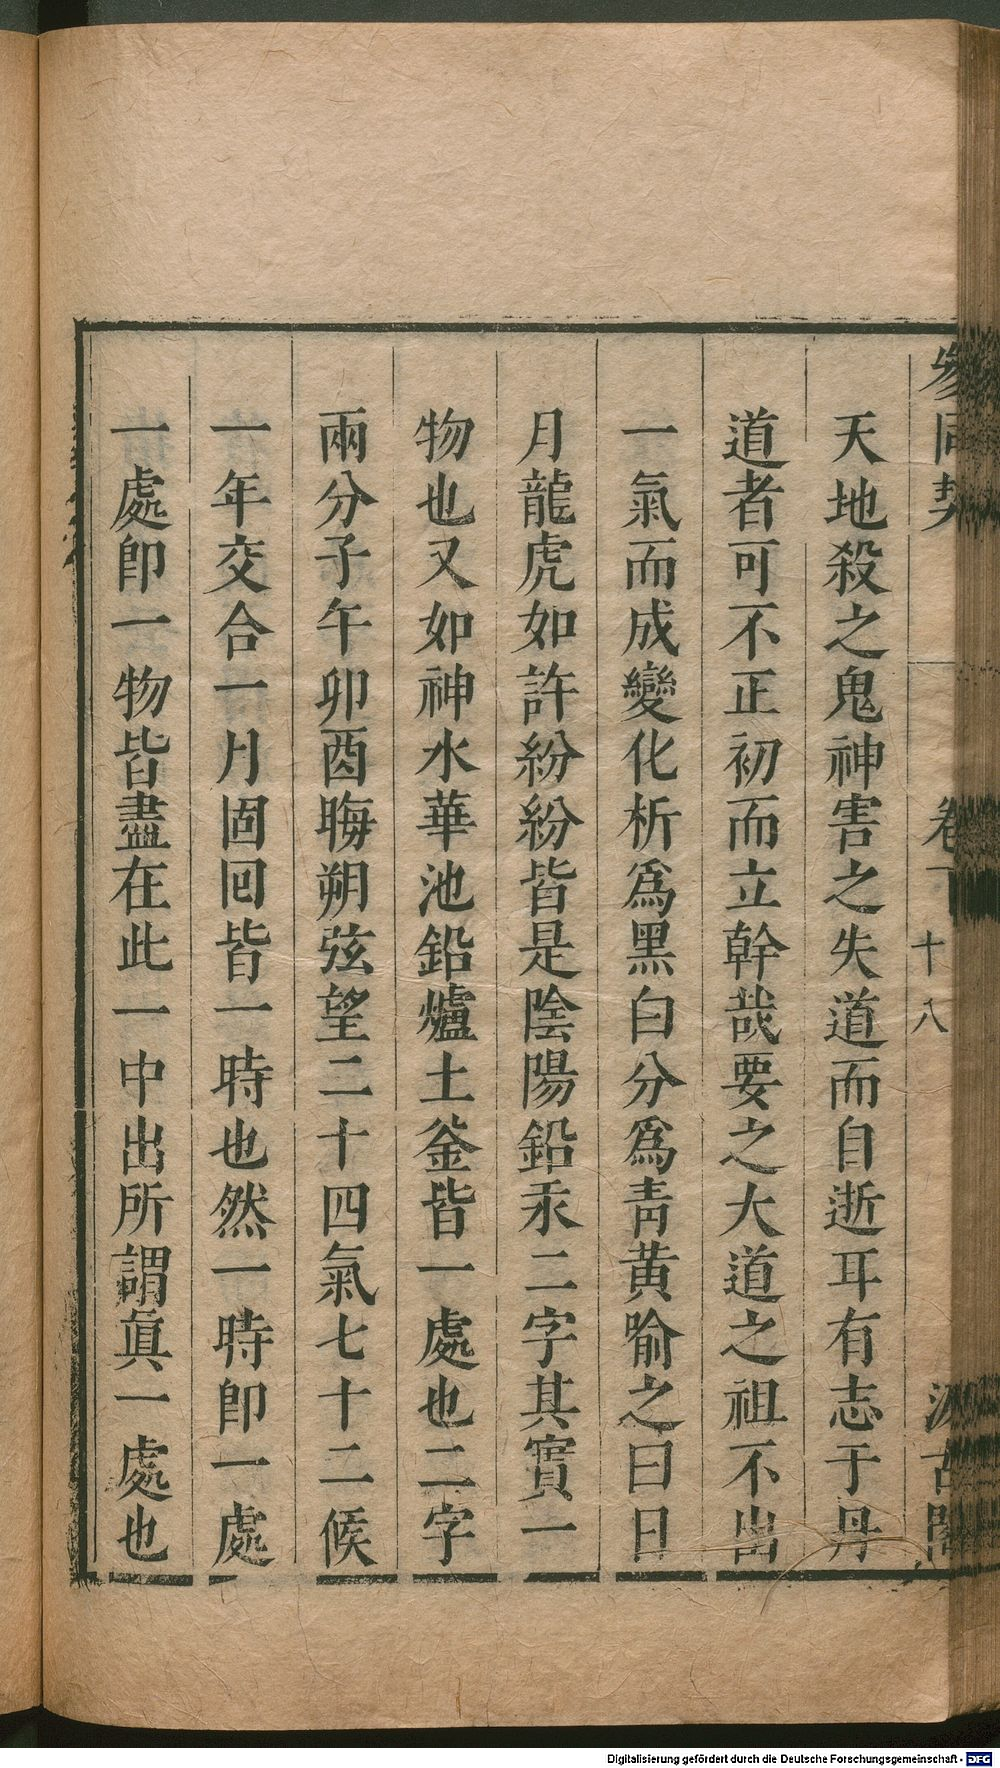 參同契 卷下 十八 汲古閣
天地殺之鬼神害之失道而自逝耳有志于丹
道者可不正初而立幹哉要之大道之祖不出
一氣而成變化析爲黑白分爲靑黃喻之曰日
月龍虎如許紛紛皆是陰陽鉛汞二字其實一
物也又如神水華池鉛爐土釜皆一處也二字
兩分子午卯酉晦朔弦望二十四氣七十二候
一年交合一月固囘皆一時也然一時卽一處
一處卽一物皆盡在此一中出所謂眞一處也
Digitalisierung gefördert durch die Deutsche Forschungsgemeinschaft - DFG